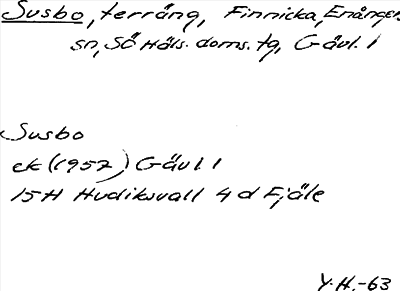 Susbo, terräng, Finnicka, Enånger
sn, Sö Häls. doms. tg, Gävl. l
Susbo
ek (1957) Gävl. l
15H Hudiksvall 4 d Fjäle
Y.H.-63